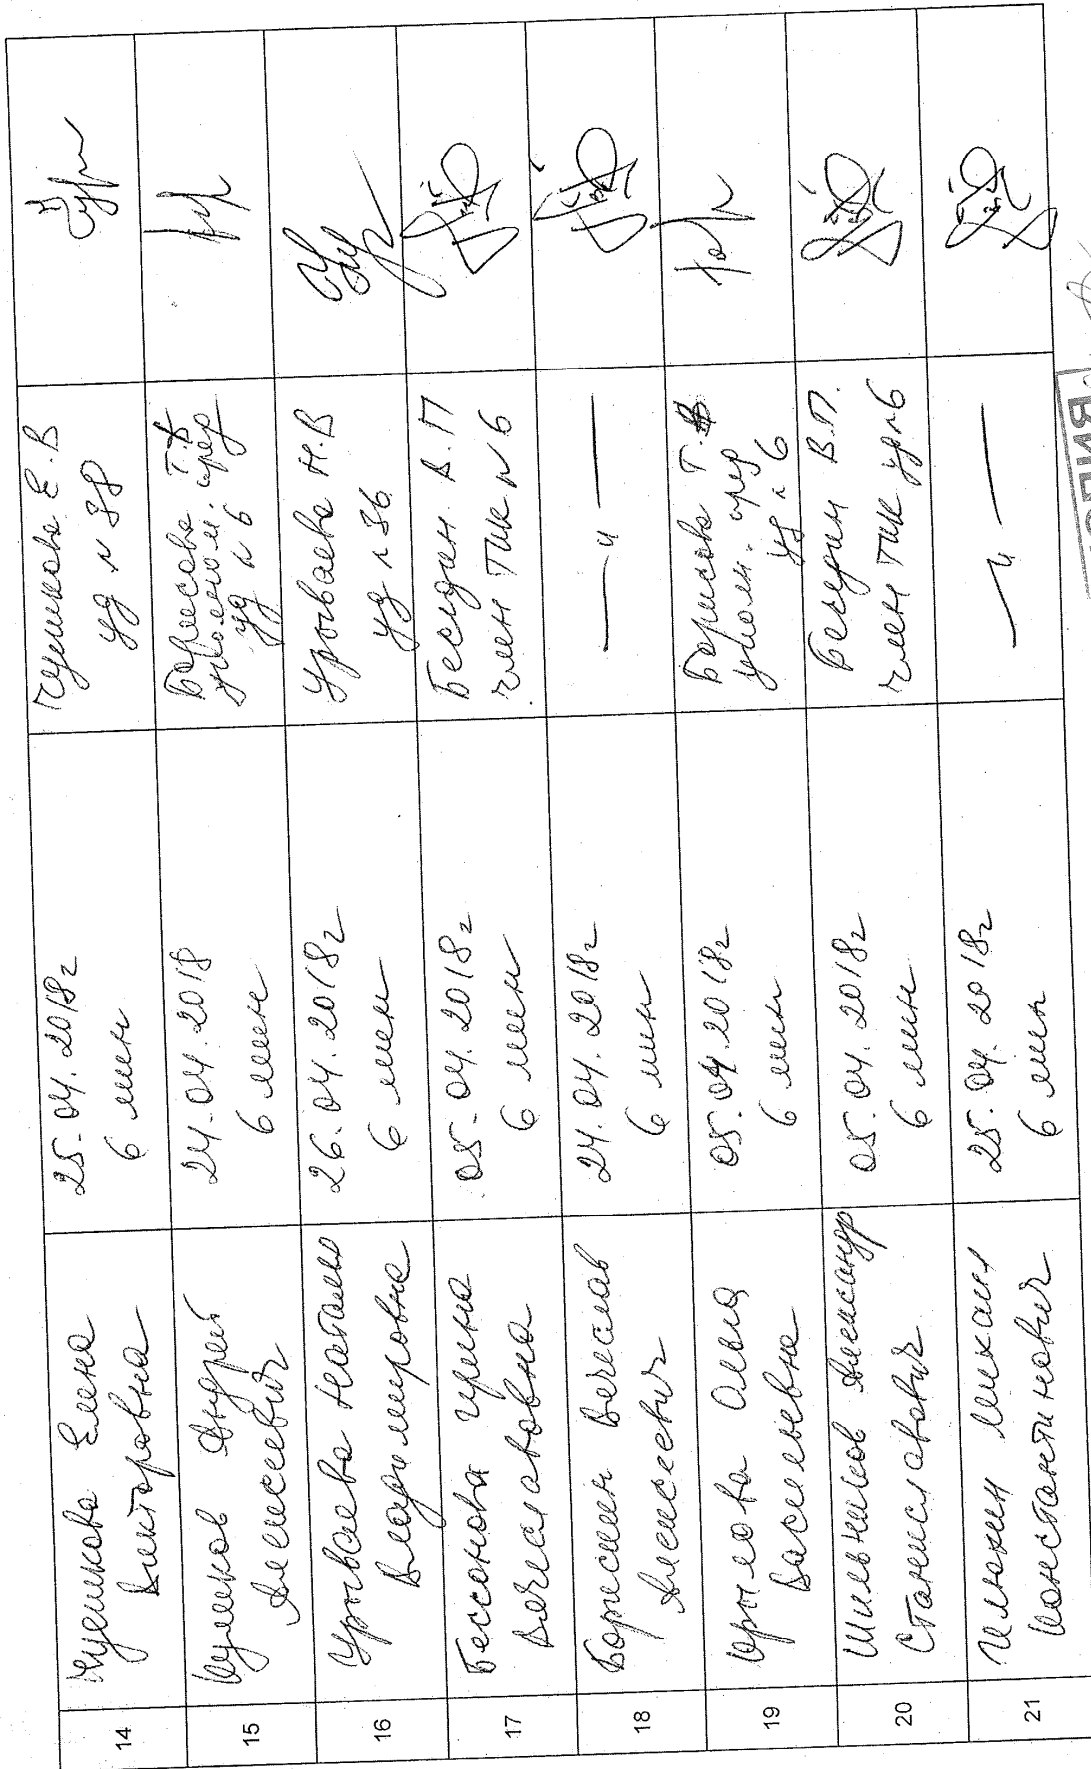 14
Чушикова Елена
Викторовна
25.04.2018г
6 мин
Чушикова Е.В
уд № 88
15
Андрей
Алексеевич
24.04.2018
6 мин
Борисова Т.В
уполном. пред
уд № 6
16
Урываева Наталья
Владимировна
26.04.2018г
6 мин
Урываева Н.В
уд № 86
17
Бессонова Ирина
Вячеславовна
05.04.2018г
6 мин
Беседин В.П
член ТИК № 6
18
Борисихин Вячеслав
Алексеевич
24.04.2018г
6 мин
— ч —
19
Крылова Ольга
Васильевна
05.04.2018г
6 мин
Борисова Т.В
уполн. пред
уд № 6
20
Шильников Александр
Станиславович
05.04.2018г
6 мин
Беседин В.П.
член ТИК уд №6
21
Илюхин Михаил
Константинович
25.04.2018г
6 мин
— ч —